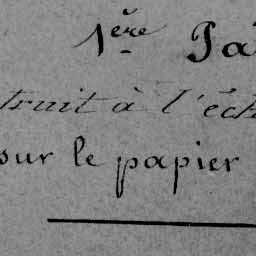 1ère Pa
truit à l'éch
sur le papier